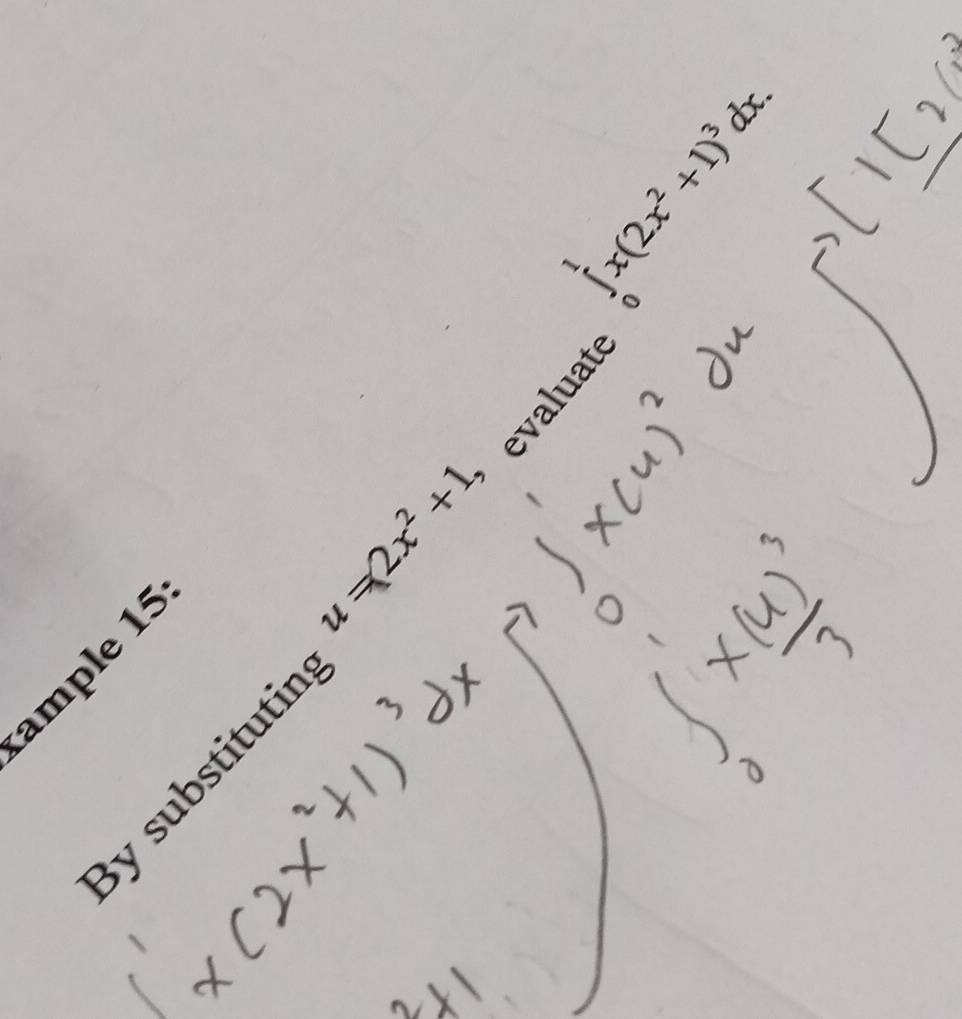 xample 15:
By substituting u = 2x² + 1, evaluate ∫₀¹ x(2x² + 1)³ dx.
∫¹ x(2x²+1)³ dx
∫₀¹ x(u)² du
∫₀¹ x(u)³/3
²+1